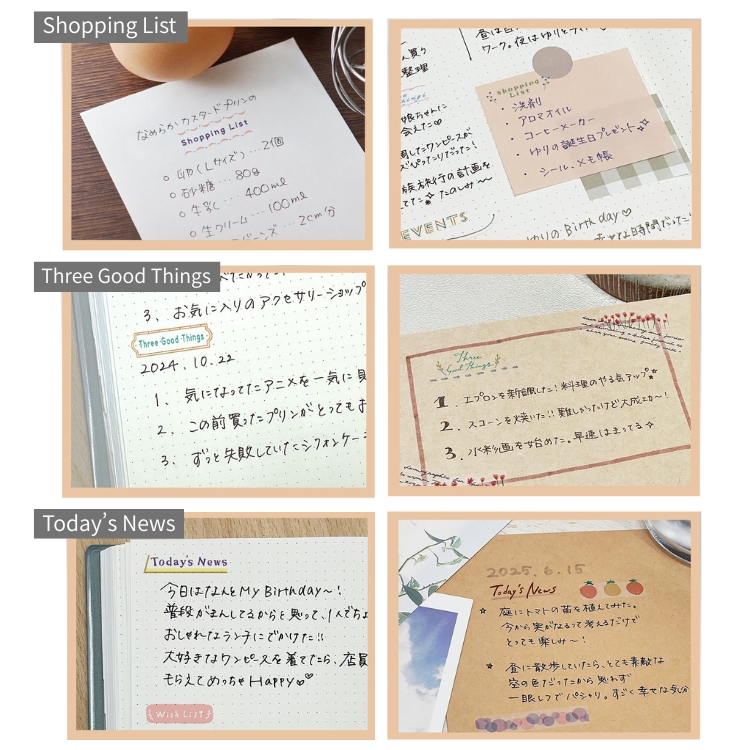 Shopping List
なめらかカスタードプリンの
Shopping List
卵(Lサイズ)…2個
砂糖…80g
牛乳…400ml
生クリーム…100ml
ビーンズ…2cm分
買う
整理
ワーク。夜はゆりと
会えた♡
したワンピースが
ぴったりだった!
族旅行の計画を
てた たのしみ〜
EVENTS
shopping List
・洗剤
・アロマオイル
・コーヒーメーカー
・ゆりの誕生日プレゼント
・シール、メモ帳
ゆりのBirthday♡
2時間だった
Three Good Things
3. お気に入りのアクセサリーショップ
Three Good Things
2024.10.22
1. 気になってたアニメを一気に見
2. この前買ったプリンがとってもお
3. ずっと失敗していたシフォンケー
Three Good Things
1. エプロンを新調した!料理のやる気アップ
2. スコーンを焼いた!!難しかったけど大成功ー!
3. 水彩画を始めた。早速はまってる
Today's News
Today's News
今日はなんとMy Birthday〜!
普段がまんしてるからと思って、1人でちょ
おしゃれなランチにでかけた!!
大好きなワンピースを着てたら、店員
もらえてめっちゃHappy♡
Wish List
2025.6.15
Today's News
庭にトマトの苗を植えてみた。
今から実がなるって考えるだけで
とっても楽しみ〜!
昼に散歩していたら、とても素敵な
空の色だったから思わず
一眼レフでパシャリ。すごく幸せな気分